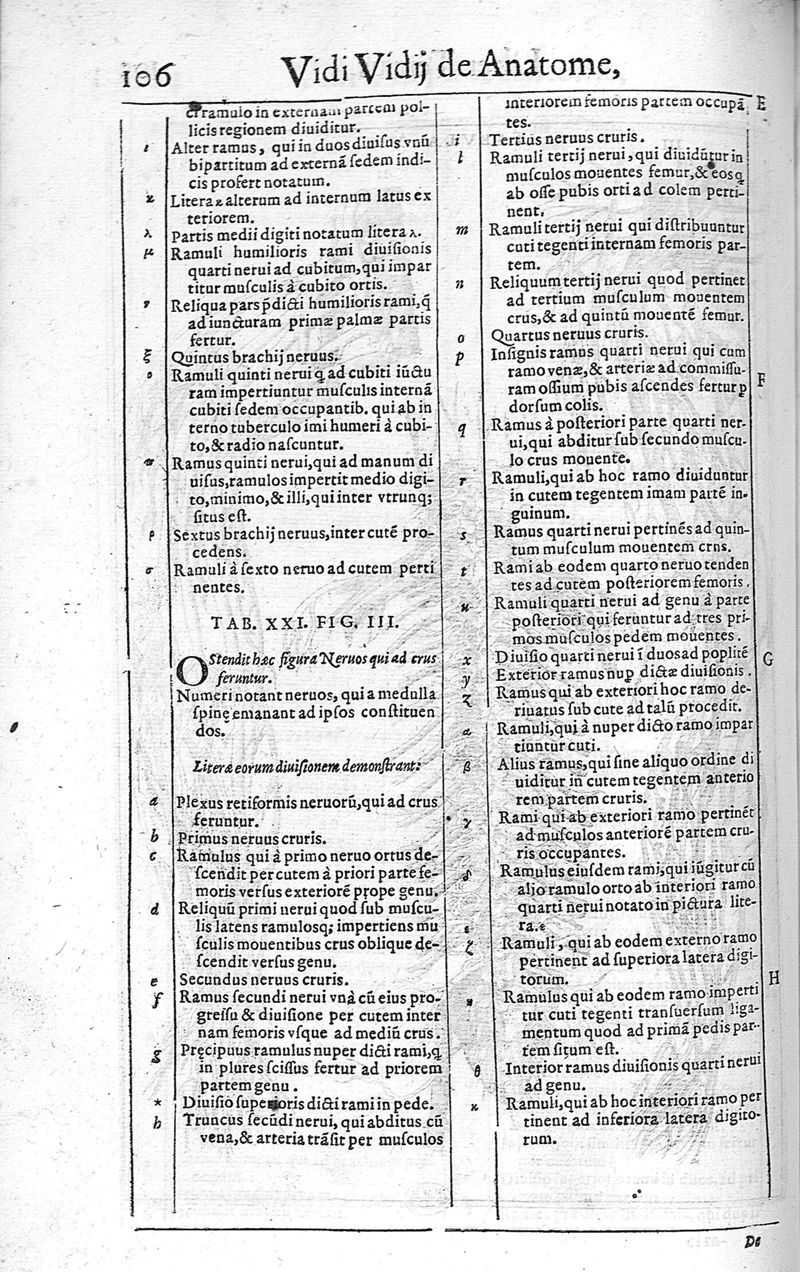 106 Vidi Vidij de Anatome,
ramulo in externam partem pol-
licis regionem diuiditur.
ι Alter ramus, qui in duos diuisus vnũ
bipartitum ad externã sedem indi-
cis profert notatum.
ϰ Litera ϰ alterum ad internum latus ex
teriorem.
λ Partis medii digiti notatum litera λ.
μ Ramuli humilioris rami diuisionis
quarti nerui ad cubitum, qui impar
titur musculis à cubito ortis.
ν Reliqua pars p̃dicti humilioris rami, q̃
ad iuncturam primæ palmæ partis
fertur.
ξ Quintus brachij neruus.
ο Ramuli quinti nerui q̃ ad cubiti iũctu
ram impertiuntur musculis internã
cubiti sedem occupantib. qui ab in
terno tuberculo imi humeri à cubi-
to, & radio nascuntur.
ϖ Ramus quinti nerui, qui ad manum di
uisus, ramulos impertit medio digi-
to, minimo, & illi, qui inter vtrunq;
situs est.
ρ Sextus brachij neruus, inter cutẽ pro-
cedens.
σ Ramuli à sexto neruo ad cutem perti
nentes.
TAB. XXI. FIG. III.
OStendit hæc figura Neruos qui ad crus
feruntur.
Numeri notant neruos, qui a medulla
spinę emanant ad ipsos constituen
dos.
Literæ eorum diuisionem demonstrant:
a Plexus retiformis neruorũ, qui ad crus
feruntur.
b Primus neruus cruris.
c Ramulus qui à primo neruo ortus de-
scendit per cutem à priori parte fe-
moris versus exteriorẽ prope genu.
d Reliquũ primi nerui quod sub muscu-
lis latens ramulosq; impertiens mu
sculis mouentibus crus oblique de-
scendit versus genu.
e Secundus neruus cruris.
f Ramus secundi nerui vnà cũ eius pro-
gressu & diuisione per cutem inter
nam femoris vsque ad mediũ crus.
g Pręcipuus ramulus nuper dicti rami, q̃
in plures scissus fertur ad priorem
partem genu.
* Diuisio superioris dicti rami in pede.
h Truncus secũdi nerui, qui abditus cũ
vena, & arteria trãsit per musculos
interiorem femoris partem occupã E
tes.
i Tertius neruus cruris.
l Ramuli tertij nerui, qui diuidũtur in
musculos mouentes femur, & eos q̃
ab osse pubis orti ad colem perti-
nent.
m Ramuli tertij nerui qui distribuuntur
cuti tegenti internam femoris par-
tem.
n Reliquum tertij nerui quod pertinet
ad tertium musculum mouentem
crus, & ad quintũ mouentẽ femur.
o Quartus neruus cruris.
p Insignis ramus quarti nerui qui cum
ramo venæ, & arteriæ ad commissu- F
ram ossium pubis ascendes fertur ꝑ
dorsum colis.
q Ramus à posteriori parte quarti ner-
ui, qui abditur sub secundo muscu-
lo crus mouente.
r Ramuli, qui ab hoc ramo diuiduntur
in cutem tegentem imam partẽ in-
guinum.
s Ramus quarti nerui pertinẽs ad quin-
tum musculum mouentem crns.
t Rami ab eodem quarto neruo tenden
tes ad cutem posteriorem femoris.
u Ramuli quarti nerui ad genu à parte
posteriori qui feruntur ad tres pri-
mos musculos pedem mouentes.
x Diuisio quarti nerui ĩ duos ad poplitẽ G
y Exterior ramus nuꝑ dictæ diuisionis.
z Ramus qui ab exteriori hoc ramo de-
riuatus sub cute ad talũ procedit.
α Ramuli, qui à nuper dicto ramo impar
tiuntur cuti.
β Alius ramus, qui sine aliquo ordine di
uiditur in cutem tegentem anterio
rem partem cruris.
γ Rami qui ab exteriori ramo pertinẽt
ad musculos anteriorẽ partem cru-
ris occupantes.
δ Ramulus eiusdem rami, qui iũgitur cũ
alio ramulo orto ab interiori ramo
quarti nerui notato in pictura lite-
ε ra. ε
ζ Ramuli, qui ab eodem externo ramo
pertinent ad superiora latera digi-
torum. H
η Ramulus qui ab eodem ramo imperti
tur cuti tegenti transuersum liga-
mentum quod ad primã pedis par-
tem situm est.
θ Interior ramus diuisionis quarti nerui
ad genu.
ϰ Ramuli, qui ab hoc interiori ramo per
tinent ad inferiora latera digito-
rum.
De